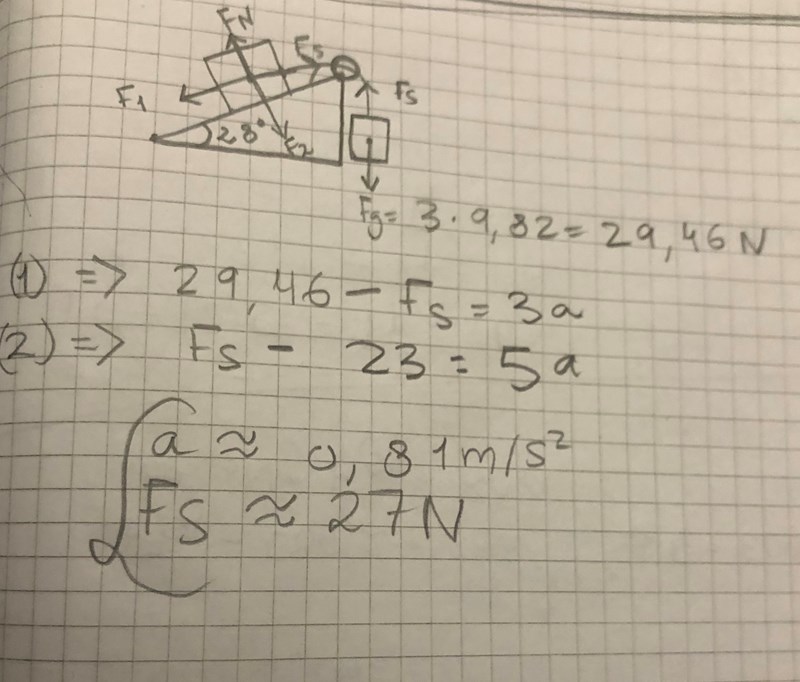 FN
Fs
F1
Fs
28°
F2
Fg = 3 · 9,82 = 29,46 N
(1) => 29,46 - Fs = 3a
(2) => Fs - 23 = 5a
a ≈ 0,81 m/s²
Fs ≈ 27N